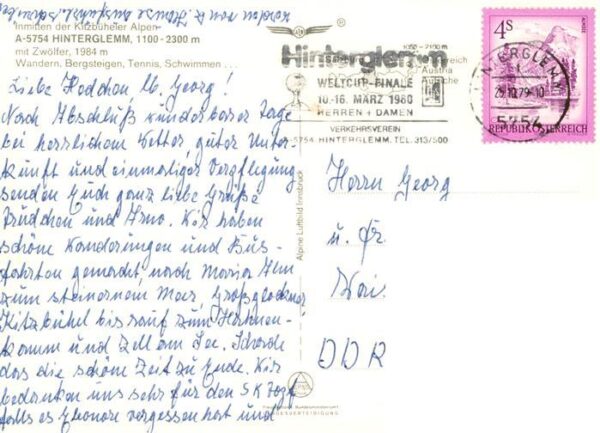 Inmitten der Kitzbüheler Alpen
A-5754 HINTERGLEMM, 1100-2300 m
mit Zwölfer, 1984 m
Wandern, Bergsteigen, Tennis, Schwimmen ...
Liebe Hedchen, lb. Georg!
Nach Abschluß wunderbarer Tage
bei herrlichem Wetter, guter Unter-
kunft und einmaliger Verpflegung
senden Euch ganz liebe Grüße
Trudchen und Arno. Wir haben
schöne Wanderungen und Bus-
fahrten gemacht, nach Maria Alm
zum steinernem Meer, Großglockner
Kitzbühel bis rauf zum Hahnen-
kamm und Zell am See. Schade
das die schöne Zeit zu Ende. Wir
bedanken uns sehr für den
falls es Eleonore vergessen hat und
Hinterglemm
1050-2100 m
Austria
WELTCUP-FINALE
10.-16. MÄRZ 1980
HERREN + DAMEN
VERKEHRSVEREIN
A-5754 HINTERGLEMM, TEL. 313/500
4S
REPUBLIK ÖSTERREICH
HINTERGLEMM
5754
Alpine Luftbild Innsbruck
Herrn Georg
u. Fr.
DDR